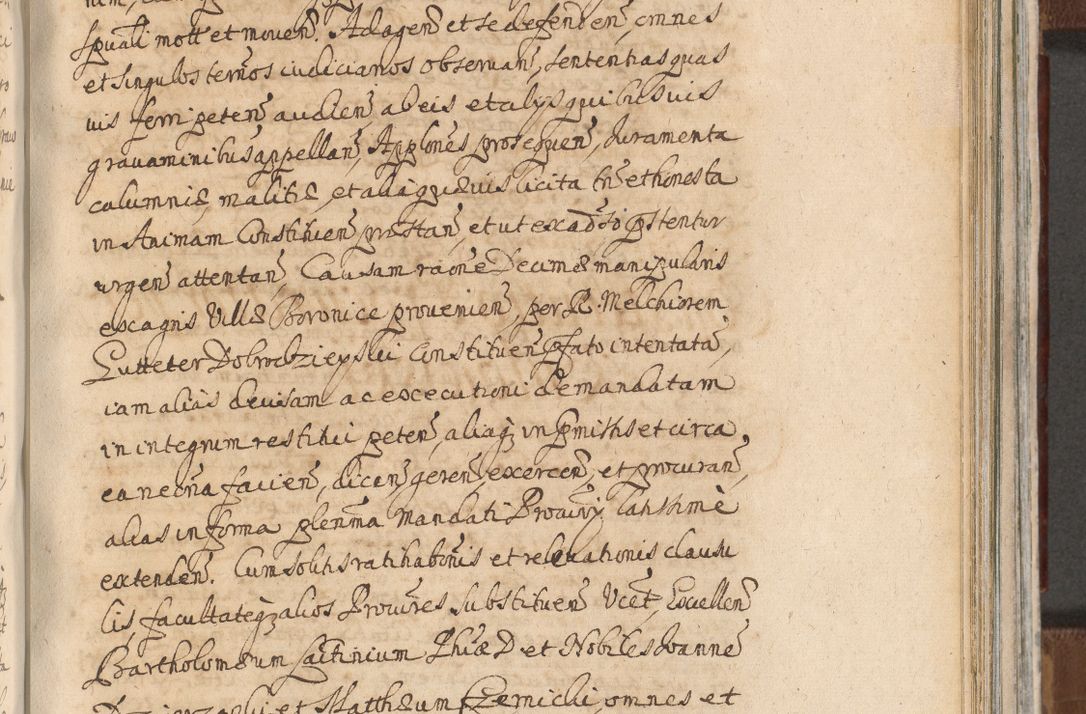 spuali mott et mouen̄. Ad agen̄ et se defenden̄, omnes
et singulos term̄os iudiciarios obseruan̄, sententias quas
uis ferri peten̄ audien̄ ab eis et alijs quibusuis
grauaminibus appellan̄, Applōnes prosequen̄, Iuramenta
calumniæ, malitiæ, et alia quæuis licita tn̄ et honesta
in Animam Constituen̄ præstan̄, et ut ex aduerso præstentur
urgen̄ attentan̄, Causam raōne Decimæ manipularis
ex agris Villæ Boronice prouenien̄, per R. Melchiorem
Gutteter Dobrodzieyski Constituen̄ pfato intentatā,
iam alias deuisam ac executioni demandatam
in integrum restitui peten̄, aliaqȝ in pmissis et circa
ea necria facien̄, dicen̄, geren̄, exercen̄, et procuran̄,
alias in forma plenria Mandati Procurrij latissimè
extenden̄. Cum solitis ratihabonis et releuationis clausu
lis, facultateqȝ alios Procurres substituen̄ Vcet, Excellen̄
Bartholomæum Phiæ D. et Nobiles Ioanne
et Matthæum Czernicki, omnes et